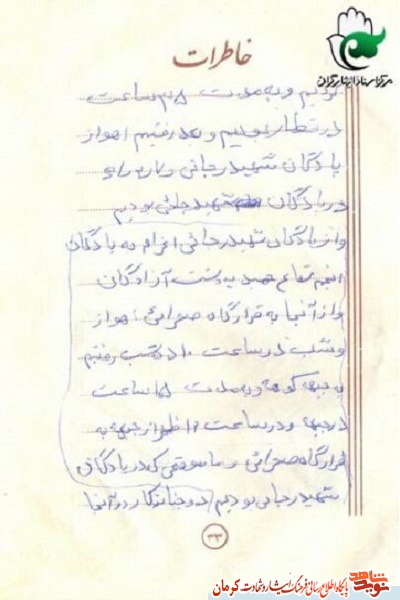 خاطرات
مرکز اسناد ایثارگران
کردیم و به مدت ۳۸ ساعت
در قطار بودیم و بعد رفتیم اهواز
پادگان شهید رجائی و
در پادگان شهید رجائی بودیم
و از پادگان شهید رجائی اعزام به پادگان
دشت آزادگان
و از آنجا به قرارگاه صحرائی اهواز
و شب در ساعت ۱۰ شب رفتیم
به جبهه و به مدت ۱۵ ساعت
در جبهه و در ساعت ۱۰ ظهر از جبهه به
قرارگاه صحرائی و ما موقعی که در پادگان
شهید رجایی بودیم در آنجا
۳۳
نوید شاهد
پایگاه اطلاع رسانی فرهنگ ایثار و شهادت کرمان